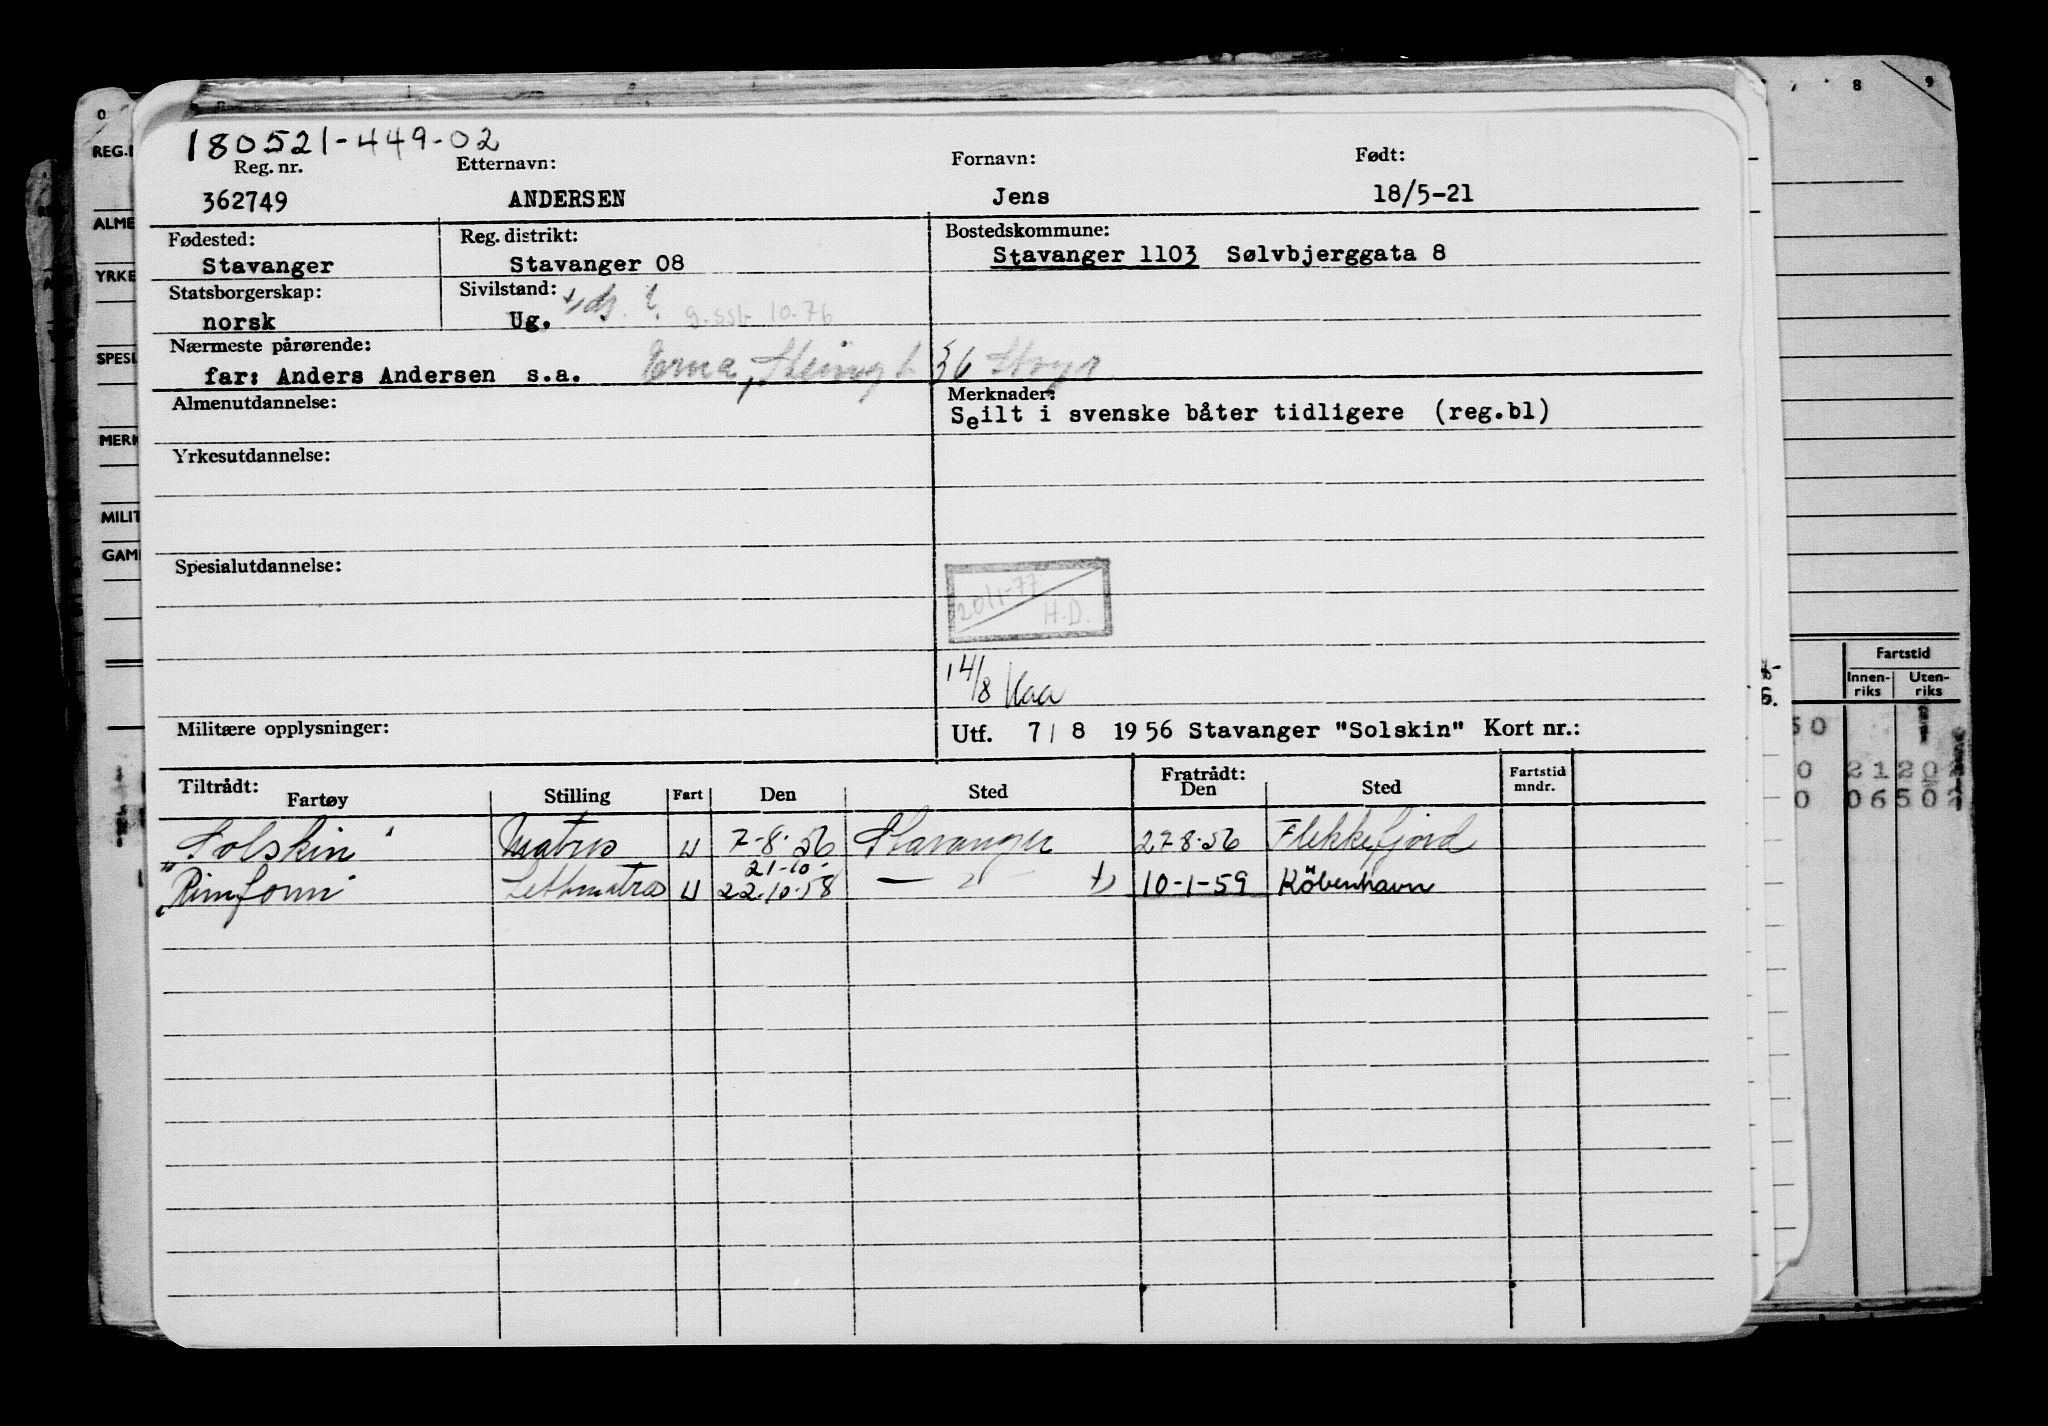 0 7 8 9
180521-449-02
REG.
Reg. nr. Etternavn: Fornavn: Født:
362749 ANDERSEN Jens 18/5-21
ALME
Fødested: Reg. distrikt: Bostedskommune:
Stavanger Stavanger 08 Stavanger 1103 Sølvbjerggata 8
YRKE
Statsborgerskap: Sivilstand:
norsk Ug. g.sst. 10.76
SPESI
Nærmeste pårørende:
far: Anders Andersen s.a. Erna, 36
Almenutdannelse: Merknader:
Seilt i svenske båter tidligere (reg.bl)
MERK
Yrkesutdannelse:
MILIT
GAM
Spesialutdannelse:
2011-77
H.D.
14/8 Kaa
Fartstid
Innen- Uten-
riks riks
Militære opplysninger: Utf. 7/8 1956 Stavanger "Solskin" Kort nr.:
50
0 2120
0 06502
Tiltrådt: Fratrådt: Fartstid
Fartøy Stilling Fart Den Sted Den Sted mndr.
"Solskin" Matros U 7-8-56 Stavanger 27-8-56 Flekkefjord
21-10-
"Rimfonn" Lettmatros U 22.10.58 — " — 10-1-59 Köbenhavn